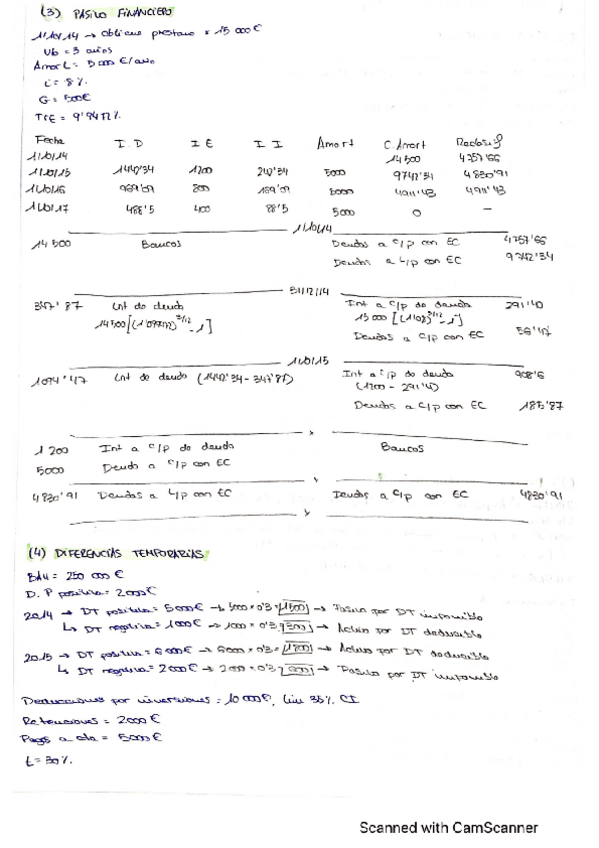 (3) PASIVO FINANCIERO
1/10/14 → Obtiene prestamo = 15 000€
Vb = 3 años
Amort = 5 000 €/año
i = 8%
G = 500€
TIE = 9'9472%
Fecha I.D I E I I Amort C. Amort Reclasif
1/10/14 14 500 4757'66
1/10/15 1442'34 1200 242'34 5000 9742'34 4830'91
1/10/16 969'09 800 169'09 5000 4911'43 4911'43
1/10/17 488'5 400 88'5 5000 0 —
1/10/14
14 500 Bancos Deudas a c/p con EC 4757'66
Deudas a L/p con EC 9742'34
31/12/14
347'87 Int de deuda Int a c/p de deuda 291'40
14500[(1'099472)^3/12 -1] 15 000 [(1'08)^3/12 -1]
Deudas a c/p con EC 56'47
1/10/15
1094'47 Int de deuda (1442'34-347'87) Int a c/p de deuda 908'6
(1200 - 291'4)
Deudas a c/p con EC 185'87
x
1 200 Int a c/p de deuda Bancos
5000 Deuda a c/p con EC
x
4830'91 Deudas a L/p con EC Deudas a c/p con EC 4830'91
x
(4) DIFERENCIAS TEMPORARIAS
BAI = 250 000€
D. P positiva = 2000€
2014 → DT positiva = 5000€ → 5000 × 0'3 = 1500 → Pasivo por DT imponible
↳ DT negativa = 1000€ → 1000 × 0'3 = 300 → Activo por DT deducible
2015 → DT positiva = 6000€ → 6000 × 0'3 = 1800 → Activo por DT deducible
↳ DT negativa = 2000€ → 2000 × 0'3 = 600 → Pasivo por DT imponible
Deducciones por inversiones = 10 000€, lim 35% CI
Retenciones = 2000€
Pagos a cta = 5000€
t = 30%
Scanned with CamScanner